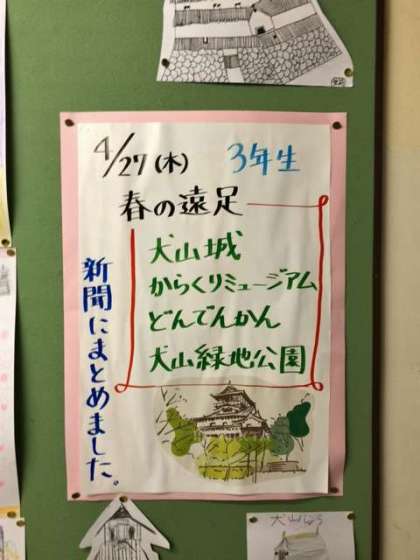 4/27(木) 3年生
春の遠足
犬山城
からくりミュージアム
どんでんかん
犬山緑地公園
新聞にまとめました。
犬山じょう